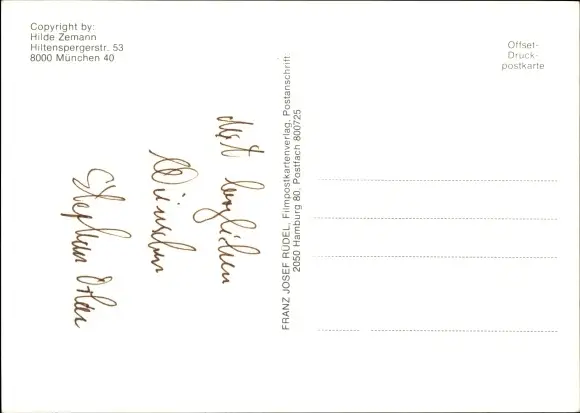 Copyright by:
Hilde Zemann
Hiltenspergerstr. 53
8000 München 40
Offset-
Druck-
postkarte
FRANZ JOSEF RÜDEL, Filmpostkartenverlag, Postanschrift
2050 Hamburg 80, Postfach 800725
Mit herzlichen
Wünschen
Stephan Orlac